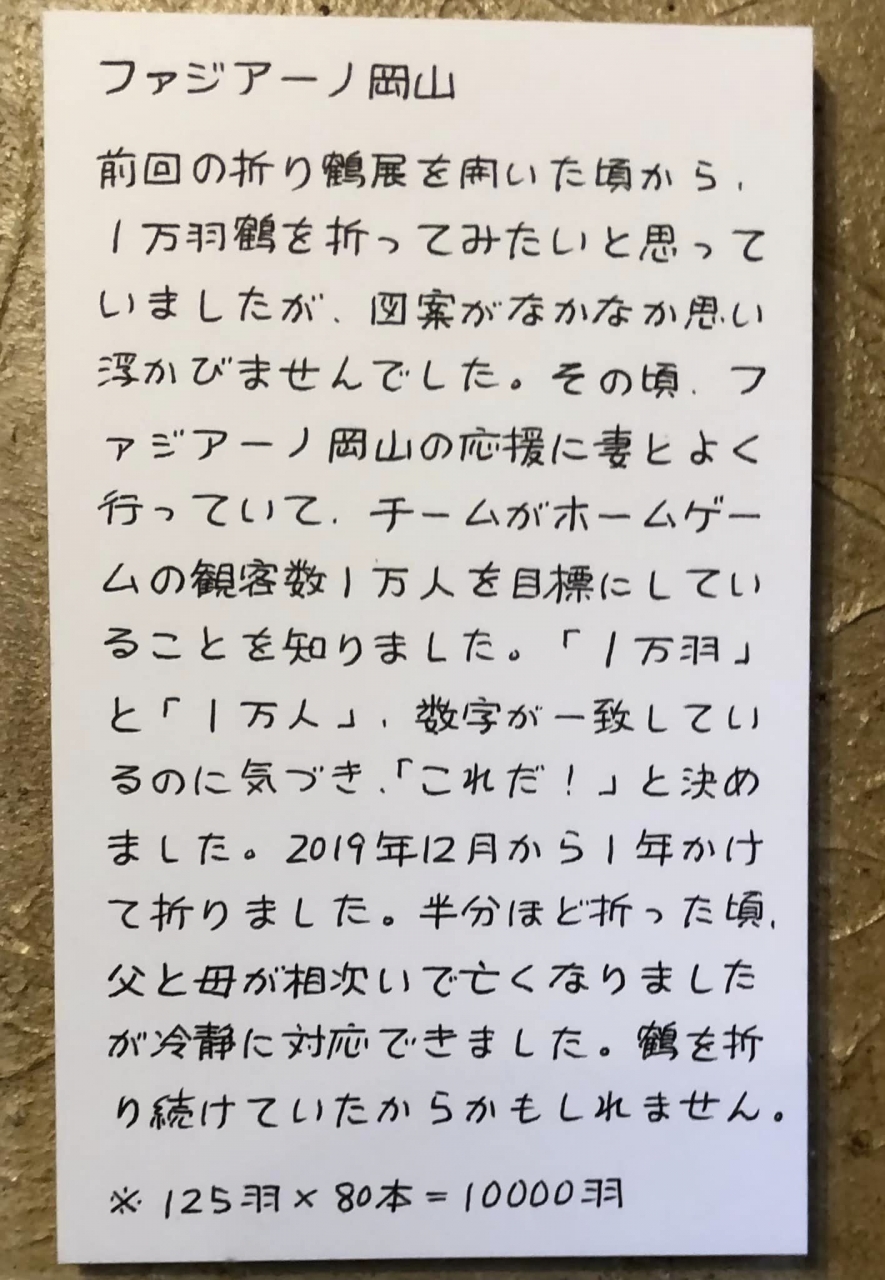 ファジアーノ岡山
前回の折り鶴展を開いた頃から、
1万羽鶴を折ってみたいと思って
いましたが、図案がなかなか思い
浮かびませんでした。その頃、フ
ァジアーノ岡山の応援に妻とよく
行っていて、チームがホームゲー
ムの観客数1万人を目標にしてい
ることを知りました。「1万羽」
と「1万人」、数字が一致してい
るのに気づき、「これだ!」と決め
ました。2019年12月から1年かけ
て折りました。半分ほど折った頃、
父と母が相次いで亡くなりました
が冷静に対応できました。鶴を折
り続けていたからかもしれません。
※ 125羽 × 80本 = 10000羽